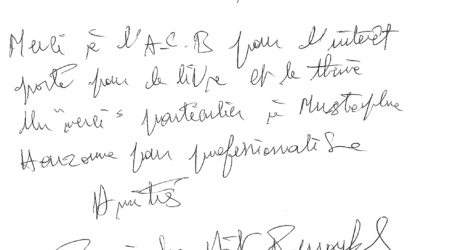 Merci à l'A.C.B pour l'intérêt
porté pour le livre et le
Un "merci" particulier à Mustapha
pour professionalisme
Amitiés